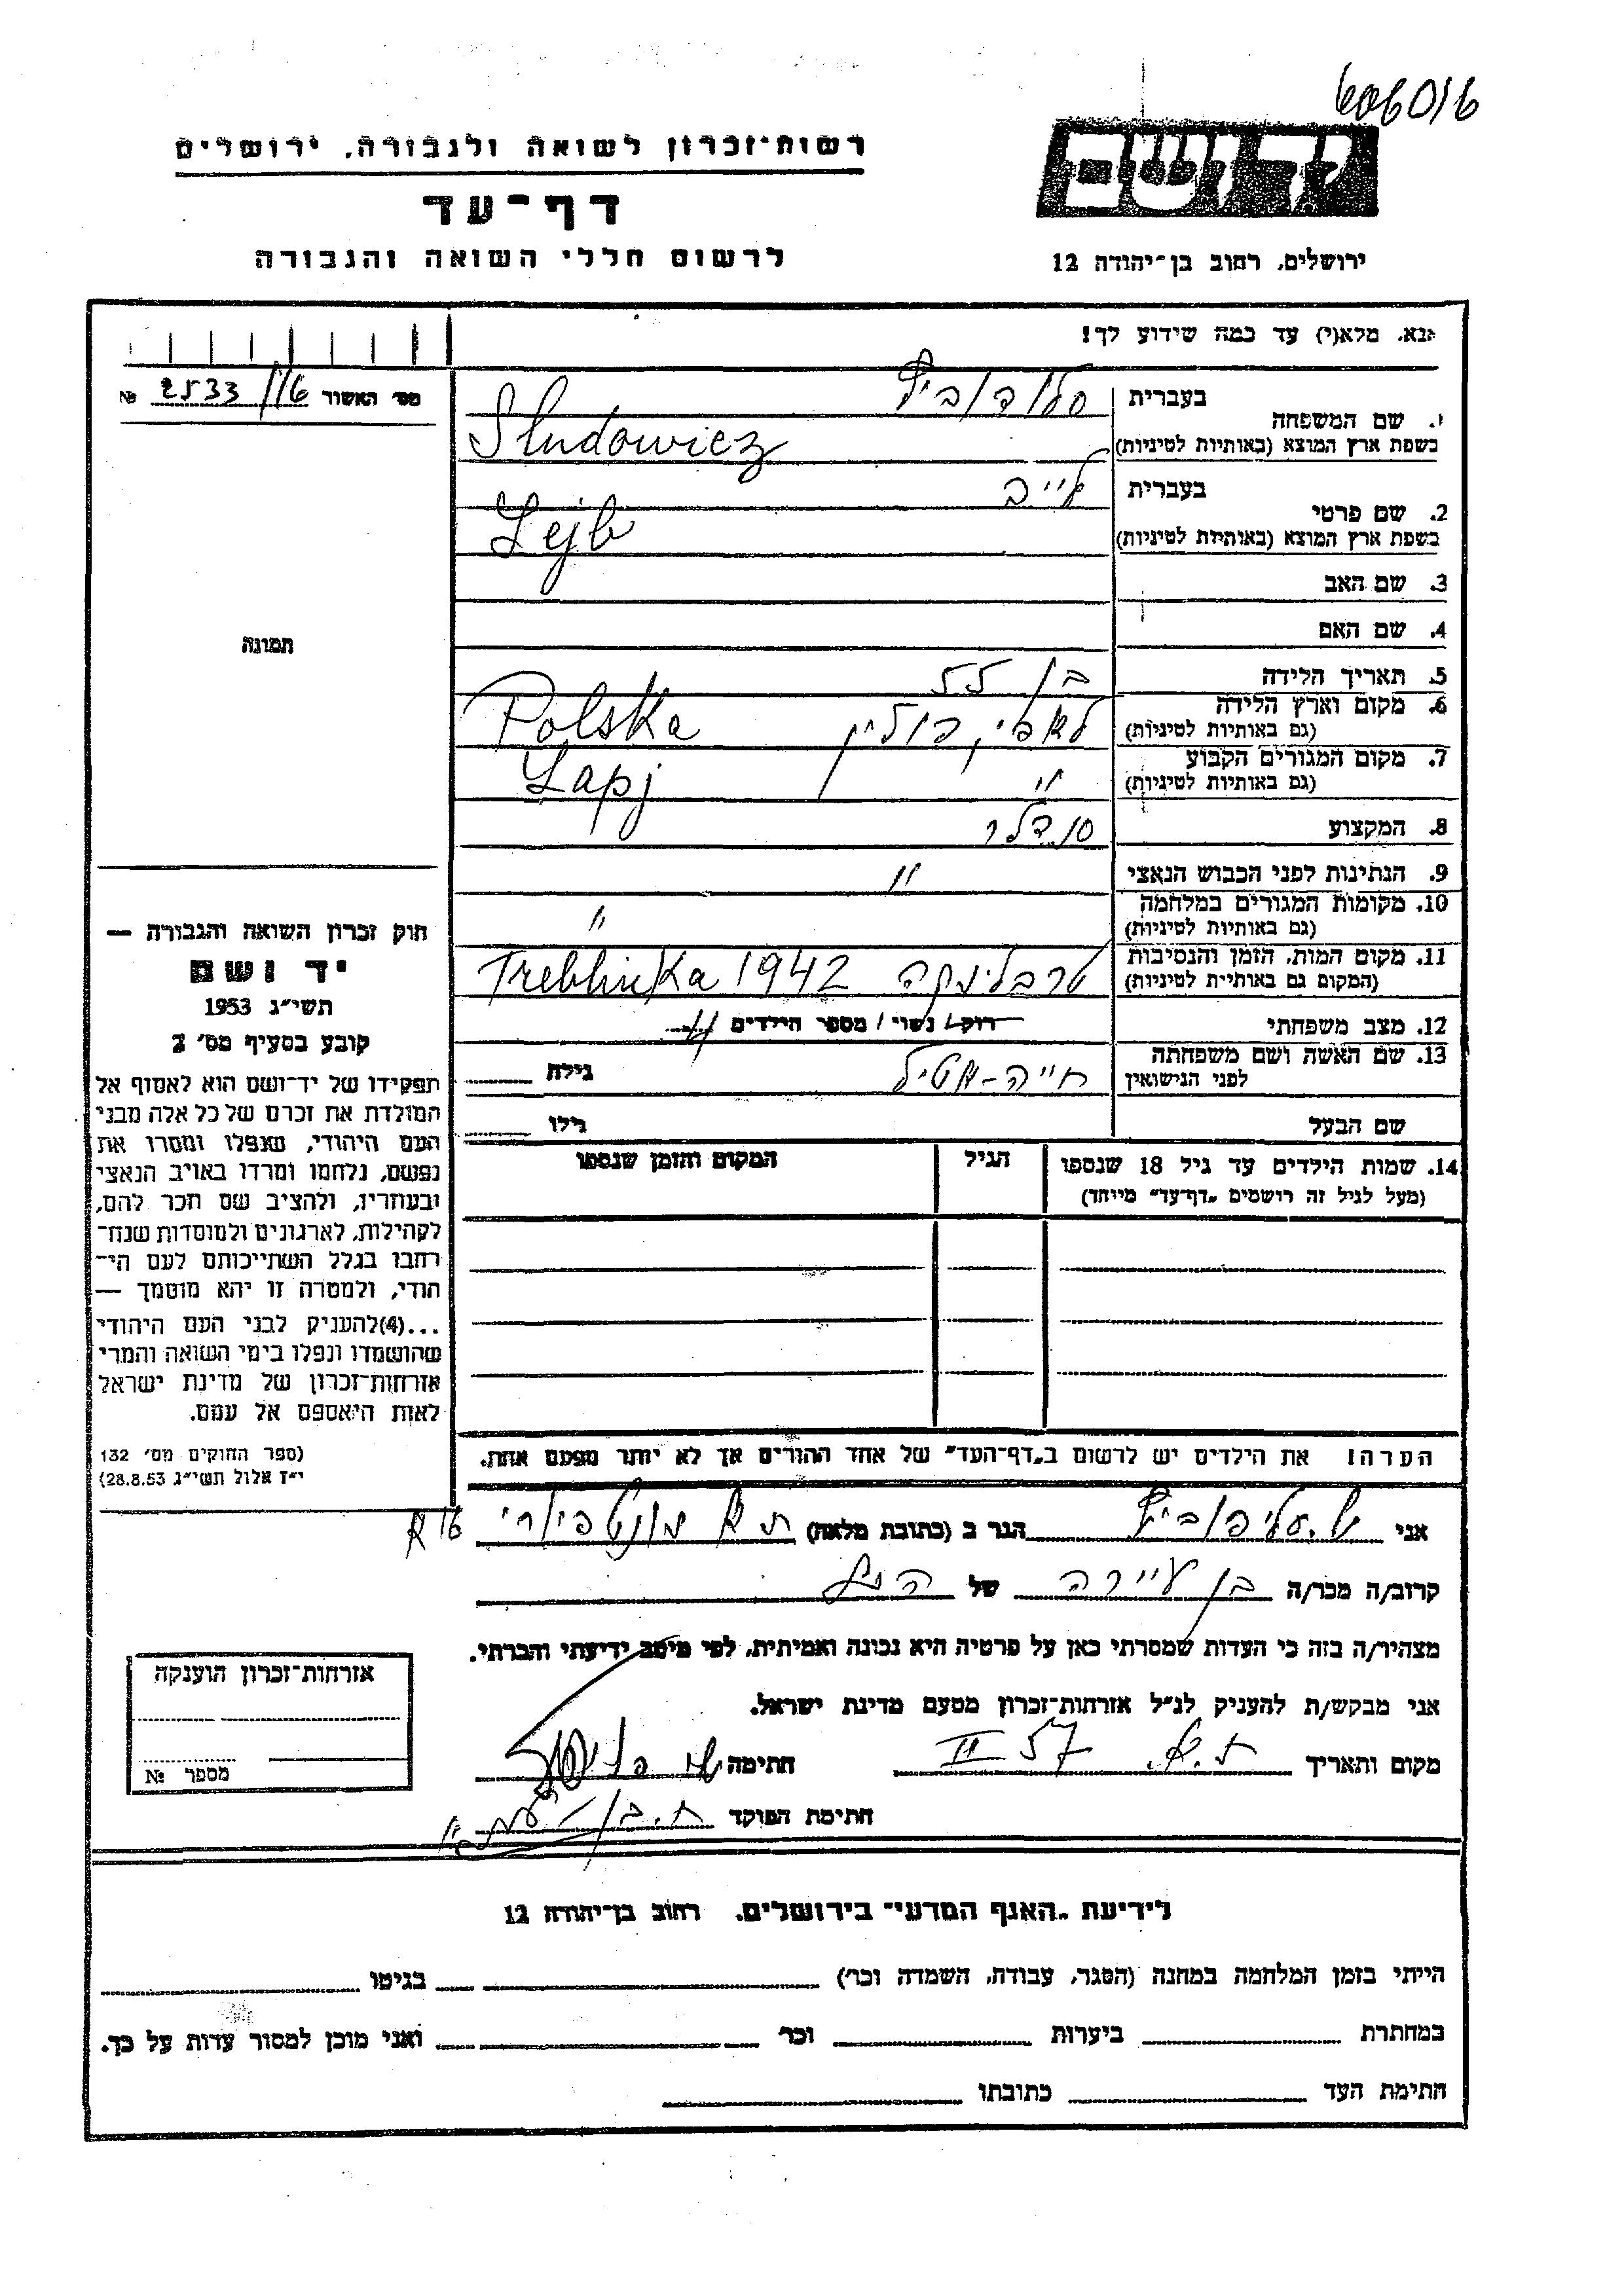 606016
רשות-זכרון לשואה ולגבורה, ירושלים
דף-עד
לרשום חללי השואה והגבורה
יד ושם
ירושלים, רחוב בן-יהודה 12
נא, מלא(י) עד כמה שידוע לך!
מס׳ האשור 2533/16 №
תמונה
1. שם המשפחה
בעברית סלודוביץ
בשפת ארץ המוצא (באותיות לטיניות) Sludowicz
2. שם פרטי
בעברית לייב
בשפת ארץ המוצא (באותיות לטיניות) Lejb
3. שם האב
4. שם האם
5. תאריך הלידה בן 55
6. מקום וארץ הלידה
(גם באותיות לטיניות) לאפי, פולין Polska
7. מקום המגורים הקבוע
(גם באותיות לטיניות) " Lapj
8. המקצוע סנדלר
9. הנתינות לפני הכבוש הנאצי "
10. מקומות המגורים במלחמה
(גם באותיות לטיניות) "
11. מקום המות, הזמן והנסיבות
(המקום גם באותיות לטיניות) טרבלינקה Treblinka 1942
12. מצב משפחתי רוק / נשוי / מספר הילדים
13. שם האשה ושם משפחתה
לפני הנישואין חייה-אטיל גילה
שם הבעל גילו
14. שמות הילדים עד גיל 18 שנספו הגיל המקום והזמן שנספו
(מעל לגיל זה רושמים „דף-עד" מייחד)
הערה! את הילדים יש לרשום ב„דף-העד" של אחד ההורים אך לא יותר מפעם אחת.
חוק זכרון השואה והגבורה —
יד ושם
תשי״ג 1953
קובע בסעיף מס׳ 2
תפקידו של יד-ושם הוא לאסוף אל
המולדת את זכרם של כל אלה מבני
העם היהודי, שנפלו ומסרו את
נפשם, נלחמו ומרדו באויב הנאצי
ובעוזריו, ולהציב שם וזכר להם,
לקהילות, לארגונים ולמוסדות שנח-
רבו בגלל השתייכותם לעם הי-
הודי, ולמטרה זו יהא מוסמך —
...(4) להעניק לבני העם היהודי
שהושמדו ונפלו בימי השואה והמרי
אזרחות-זכרון של מדינת ישראל
לאות היאספם אל עמם.
(ספר החוקים מס׳ 132
י״ז אלול תשי״ג 28.8.53)
אני הגר ב (כתובת מלאה) ת א מונטפיורי 16
קרוב/ה מכר/ה בן עיירה של הנ״ל
מצהיר/ה בזה כי העדות שמסרתי כאן על פרטיה היא נכונה ואמיתית, לפי מיטב ידיעתי והכרתי.
אני מבקש/ת להעניק לנ״ל אזרחות-זכרון מטעם מדינת ישראל.
מקום ותאריך ת.א. 57 II חתימה
חתימת הפוקד
אזרחות-זכרון הוענקה
מספר №
לידיעת „האגף המדעי" בירושלים, רחוב בן-יהודה 12
הייתי בזמן המלחמה במחנה (הסגר, עבודה, השמדה וכו׳) בגיטו
במחתרת ביערות וכו׳ ואני מוכן למסור עדות על כך.
חתימת העד כתובתו